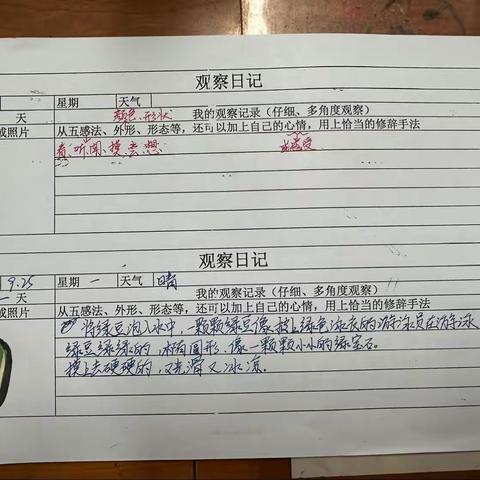 观察日记
星期 天气
天 颜色、形状 我的观察记录（仔细、多角度观察）
或照片 从五感法、外形、形态等，还可以加上自己的心情，用上恰当的修辞手法
看、听、闻、摸、尝、想 感受
观察日记
9.25 星期 一 天气 晴
一天 我的观察记录（仔细、多角度观察）
或照片 从五感法、外形、形态等，还可以加上自己的心情，用上恰当的修辞手法
将绿豆泡入水中，一颗颗绿豆像披上绿色泳衣的游泳员在游泳
绿豆绿绿的 椭圆形，像一颗颗小小的绿宝石。
摸上去硬硬的，又光滑又冰凉.